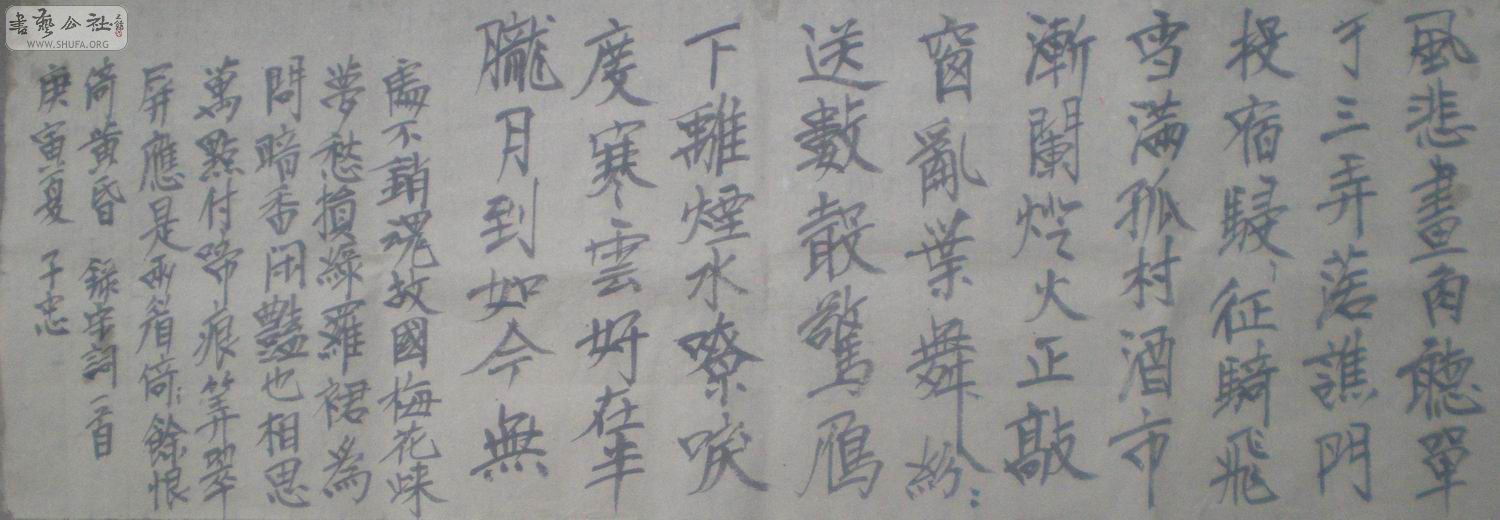 書藝公社
WWW.SHUFA.ORG
風悲畫角聽單
于三弄落譙門
投宿駸〻征騎飛
雪滿孤村酒市
漸闌燈火正敲
窗亂葉舞紛〻
送數聲驚鴈
下離煙水嘹唳
度寒雲好在半
朧月到如今無
處不銷魂故國梅花歸
夢愁損綠羅裙為
問暗香閑豔也相思
萬點付啼痕算翠
屏應是兩眉倚餘恨
倚黃昏 錄宋詞一首
庚寅夏 子忠